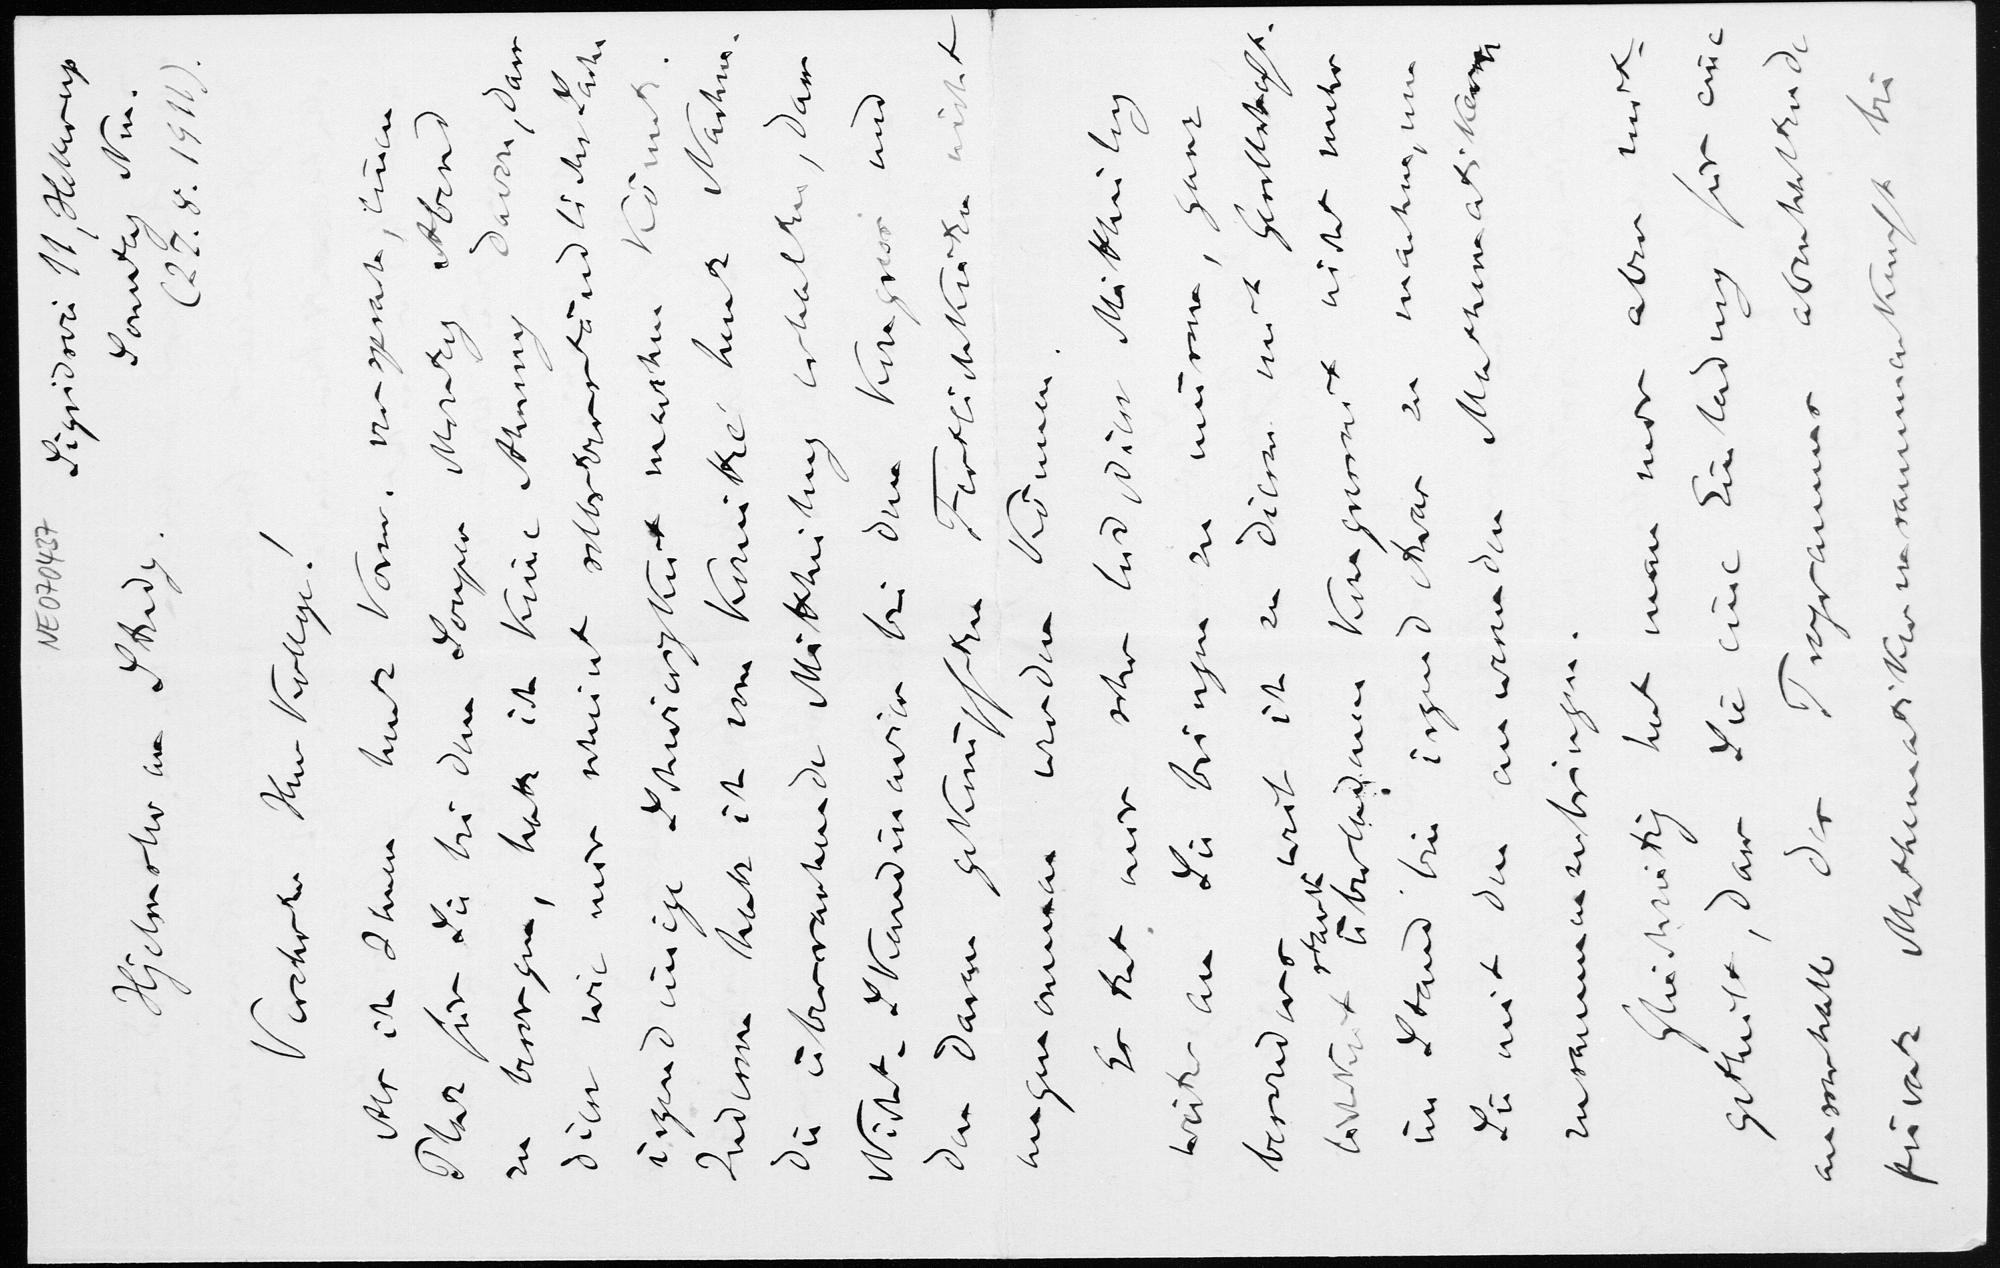 NE070437
Sigridsvei 11, Hellerup
Sonntag Nm.
(27.8.1911).
Hjelmslev an Study.
Verehrter Herr Kollege!
Als ich Ihnen heute Vorm. versprach, einen
Platz für Sie bei dem Souper Montag Abend
zu besorgen, hatte ich keine Ahnung davon, dass
diese wie mir scheint selbstverständliche Sache
irgend einige Schwierigkeit machen könnte.
Indessen habe ich vom Komitée heute Nachm.
die überraschende Mittheilung erhalten, dass
Nicht-Skandinavier bei dem Kongress und
den daran geknüpften Festlichkeiten nicht
angenommen werden können.
Es tut mir sehr leid diese Mittheilung
weiter an Sie bringen zu müssen, ganz
besonders weil ich zu diesem mit Gesellschaft-
lichkeit stark überladenen Kongresszeit nicht mehr
im Stand bin irgend etwas zu machen, um
Sie mit den anwesenden Mathematikern
zusammenzubringen.
Gleichzeitig hat man mir aber mit-
getheilt, dass Sie eine Einladung für eine
ausserhalb des Programmes abzuhaltende
private Mathematikerzusammenkunft bei